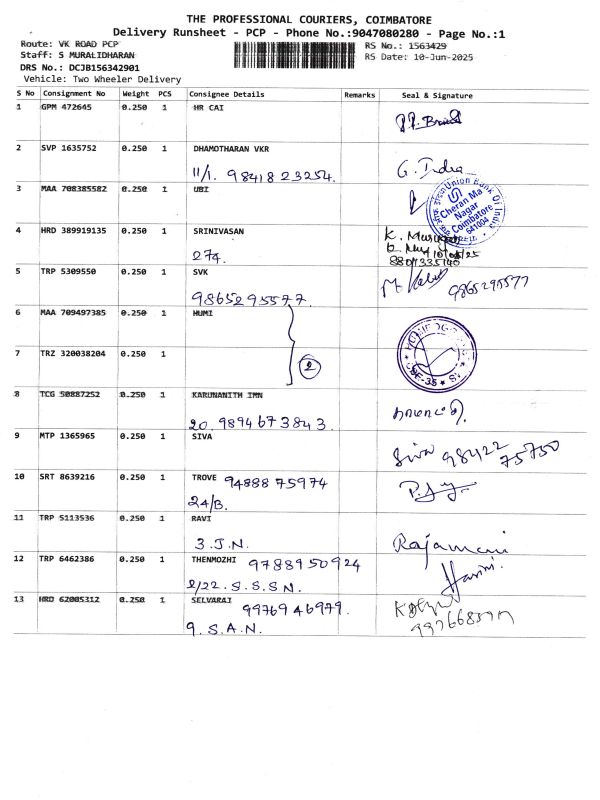 THE PROFESSIONAL COURIERS, COIMBATORE
Delivery Runsheet - PCP - Phone No.:9047080280 - Page No.:1
Route: VK ROAD PCP
RS No.: 1563429
Staff: S MURALIDHARAN
RS Date: 10-Jun-2025
DRS No.: DCJB156342901
Vehicle: Two Wheeler Delivery
S No Consignment No Weight PCS Consignee Details Remarks Seal & Signature
1 GPM 472645 0.250 1 HR CAI
2 SVP 1635752 0.250 1 DHAMOTHARAN VKR
11/1. 98418 23254. G. Indra
3 MAA 708385582 0.250 1 UBI
Union Bank Of India
Cheran Ma
Nagar
Coimbatore
641004
4 HRD 389919135 0.250 1 SRINIVASAN
274.
5 TRP 5309550 0.250 1 SVK
9865295577. 9865295577
6 MAA 709497385 0.250 1 HUMI
7 TRZ 320038204 0.250 1
2
8 TCG 50887252 0.250 1 KARUNANITH IMN
20. 9894673843.
9 MTP 1365965 0.250 1 SIVA
Siva 98422
75750
10 SRT 8639216 0.250 1 TROVE 94888 75974
24/B.
11 TRP 5113536 0.250 1 RAVI
3. J.N. Rajamani
12 TRP 6462386 0.250 1 THENMOZHI 9788950924
2/22. S.S.S.N. Harini
13 HRD 62005312 0.250 1 SELVARAJ 9976946979.
9. S.A.N.